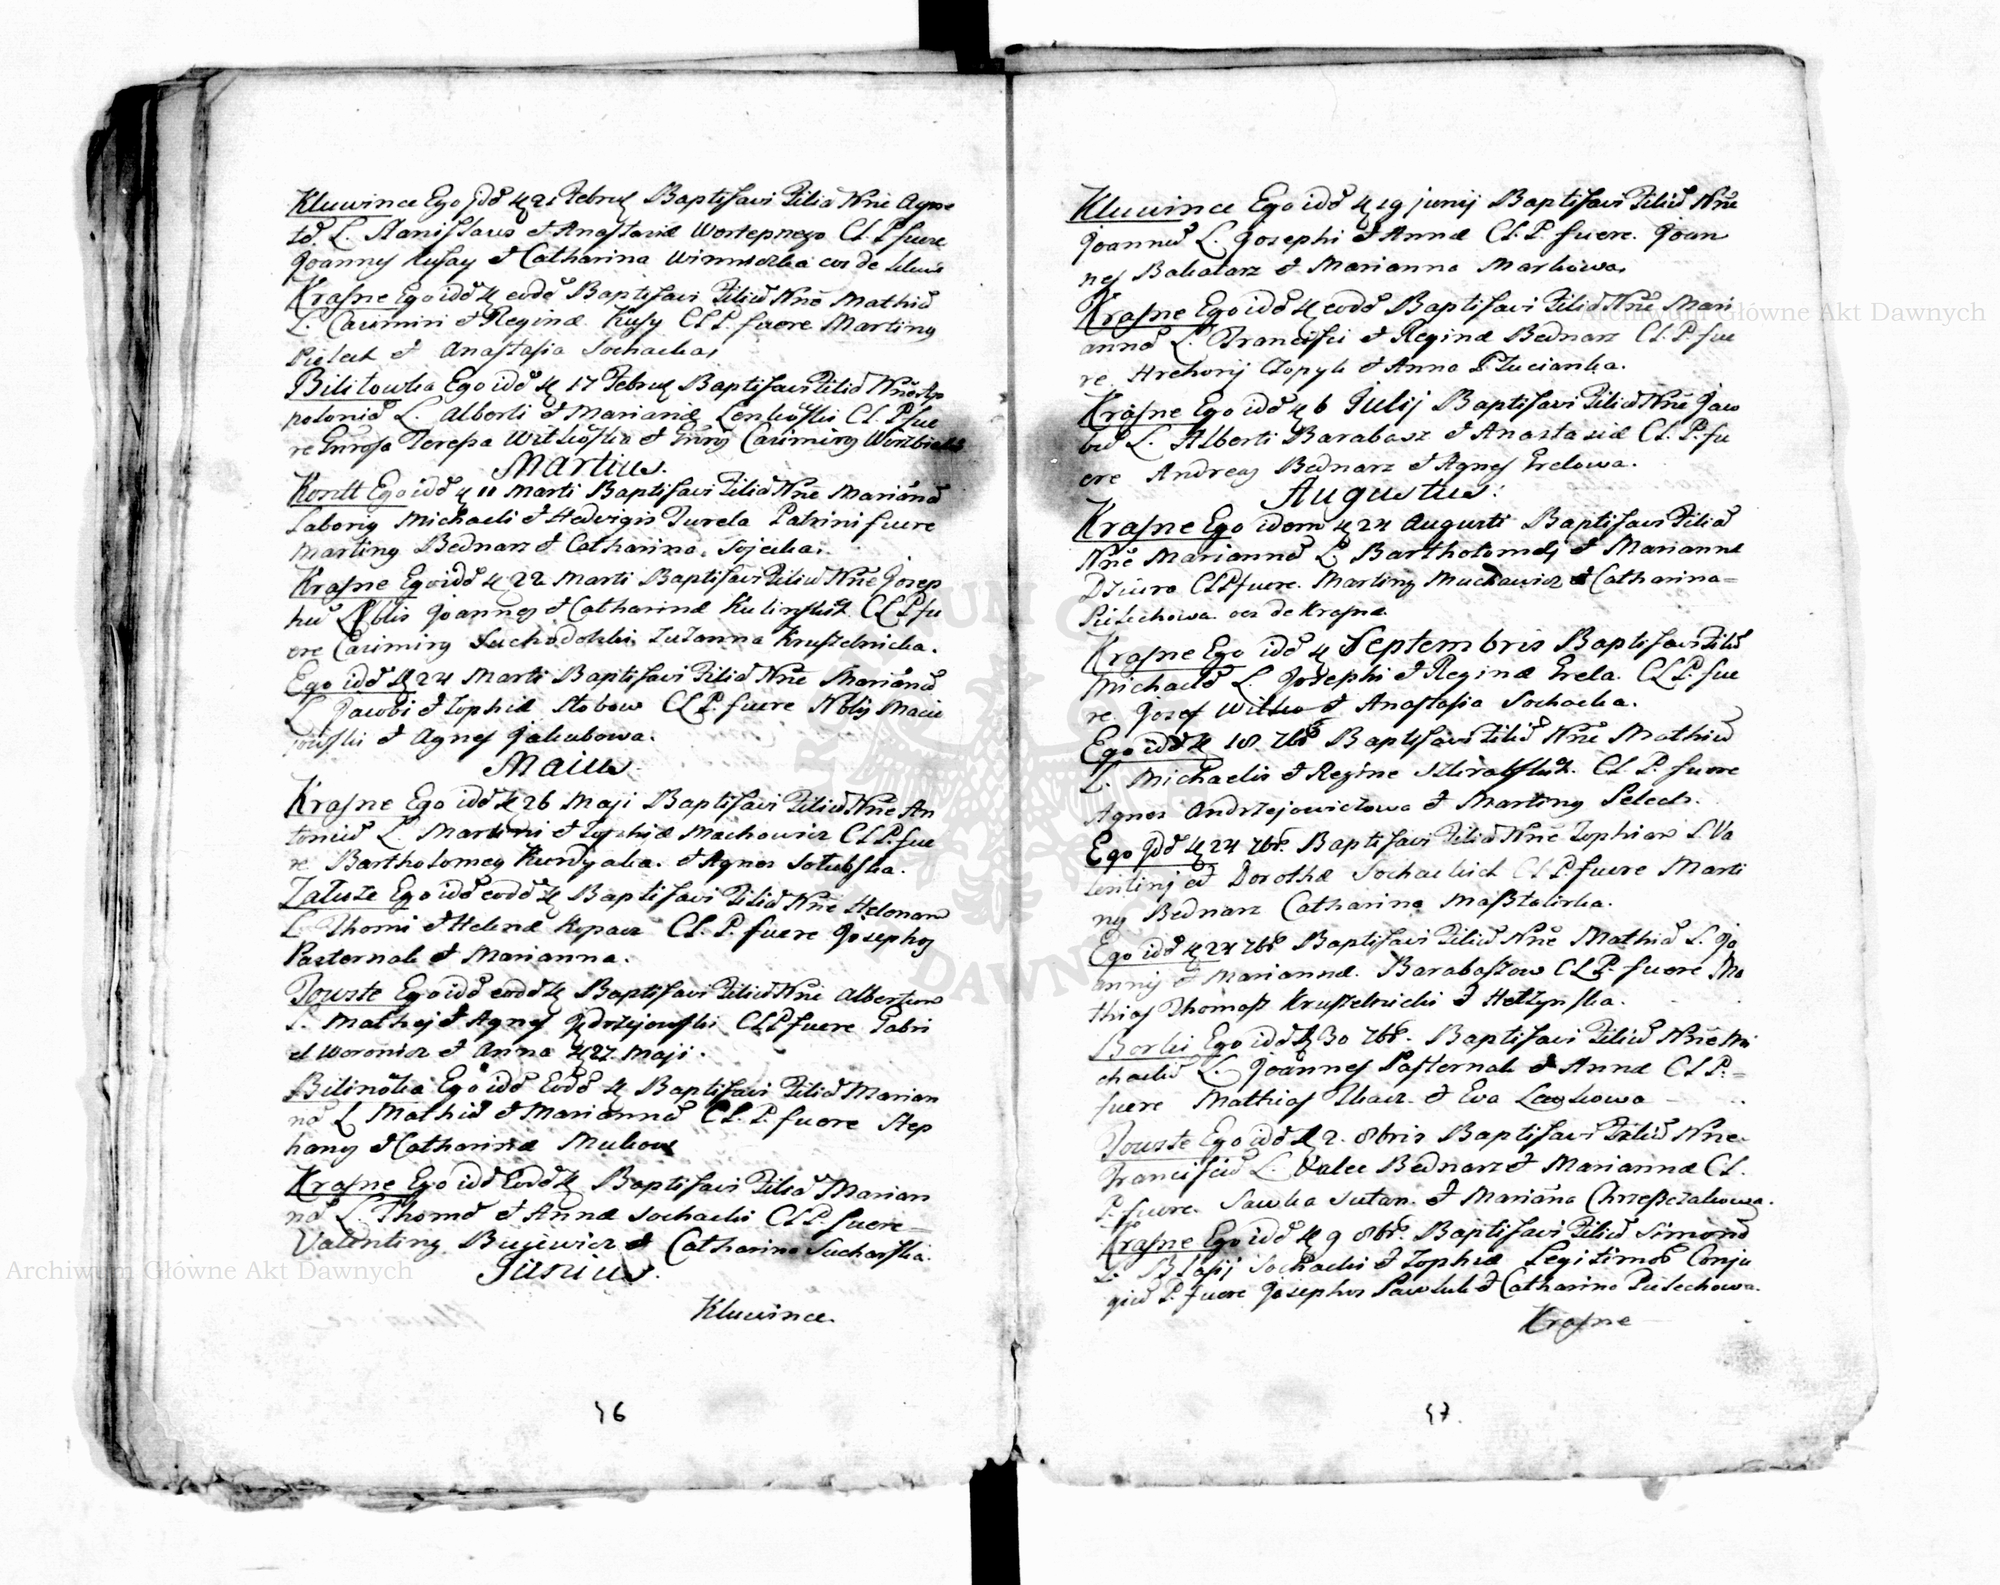 Kluwince Ego Jdẽ 21 Februar Baptisavi Filiã Nñe Agne
tẽ. L. Stanislaus et Anastasiæ Wostepnego CL. P. fuere
Joannes Kusay et Catharina
Krasne Ego idẽ eodẽ Baptisavi Filiũ Nñe Mathiã
L. Casimiri et Reginæ Kusy CLP. fuere Marting
Pielech et Anastasia Sochacka,
Bilitowka Ego idẽ 17 Februar Baptisavi Filiã Nñe Ap
poloniã L. Alberti et Marianæ Lenkõski CL. P. fue
re Theresa Witkõska et Casimirg
Martius.
Ego idẽ 11 Marti Baptisavi Filiã Nñe Mariãnã
Laborig Michaeli et Hedvigis Turela Patrini fuere
Marting Bednarz et Catharina Sojecka.
Krasne Ego idẽ 22 Marti Baptisavi Filiũ Nñe Josep
hũ Nblis Joannes et Catharinæ CLP. fu
ere Casimirg Suchodolski Zuzanna Kruszelnicka.
Ego idẽ 24 Marti Baptisavi Filiã Nñe Mariãnã
L. Jacobi et Zophiæ CLP. fuere Nblis Macie
jowski et Agnes Jakubowa.
Maius
Krasne Ego idẽ 26 Maji Baptisavi Filiũ Nñe An
toniũ L. Martini et Zophiæ Machowicz CLP. fue
re Bartholomeg Kurdyalia. et Agnes
Zaluze Ego idẽ eodẽ Baptisavi Filiã Nñe Helenam
L. Thomi et Helenæ Kopacz CL. P. fuere Josephg
Pasternak et Marianna.
Touste Ego idẽ eodẽ Baptisavi Filiũ Nñe Albertum
L. Mathej et Agnes Jędrzejowski CLP fuere Gabri
el Woronicz et Anna 27 Maji.
Bilinõka Ego idẽ Eodẽ Baptisavi Filiã Marian
nã L. Mathiæ et Mariannæ CL. P. fuere Step
hang et Catharinæ
Krasne Ego idẽ Eodẽ Baptisavi Filiã Marian
nã L. Thomæ et Annæ Sochacki CLP. fuere
Valenting Bujewicz et Catharina Sucharska.
Junius.
Kluwince.
56
Kluwince Ego idẽ 19 junij Baptisavi Filiũ Nñe
Joannẽ L. Josephi et Annæ CL. P. fuere. Joan
nes Bakalarz et Marianna Markowa,
Krasne Ego idẽ eodẽ Baptisavi Filiã Nñe Mari
annã L. Francisci et Reginæ Bednarz CL. P. fue
re Hrehorij Zopyk et Anna
Krasne Ego idẽ 6 Julij Baptisavi Filiũ Nñe Jaco
bũ L. Alberti Barabasz et Anastasiæ CL. P. fu
ere Andreas Bednarz et Agnes Grelowa.
Augustus:
Krasne Ego idem 24 Augusti Baptisavi Filiã
Nñe Mariannã L. Bartholomej et Marianne
Dziura CLP fuere. Marting Muchawicz et Catharina
Pielechowa oes de Krasne
Krasne Ego idẽ Septembris Baptisavi Filiũ
Michaelẽ L. Josephi et Reginæ Grela. CLP. fue
re Jozef et Anastasia Sochacka.
Ego idẽ 18. 7br Baptisavi Filiũ Nñe Mathiũ
L. Michaelis et Regine CL. P. fuere
Agnes Andrzejowiczowa et Marting Pelech.
Ego Jdẽ 24 7br. Baptisavi Filiã Nñe Zophiam L. Va
lentinj et Dorothæ Sochackich CLP fuere Marti
ng Bednarz Catharina Masztalirka.
Ego idẽ 24 7br Baptisavi Filiũ Nñe Mathiã L. Jo
annij et Mariannæ. Barabaszow CLP. fuere Ma
thias Thomasz Kruszelnicki et
Borki Ego idẽ 30 7br. Baptisavi Filiũ Nñe Mi
chaelẽ L. Joannes Pasternak et Annæ CLP.
fuere Mathias et Eva
Touste Ego idẽ 2. 8bris Baptisavi Filiũ Nñe
Franciscũ L. Bednarz et Mariannæ CL.
P. fuere. Sawka Sutan. et Mariãna Chrzeszczakowa.
Krasne Ego idẽ 9 8br. Baptisavi Filiũ Simonẽ
L. Blasij Sochacki et Zophiæ Legitimor Conju
gũ P. fuere Josephus Pawluk et Catharina Pielechowa.
Krasne
57.
Archiwum Główne Akt Dawnych
Archiwum Główne Akt Dawnych